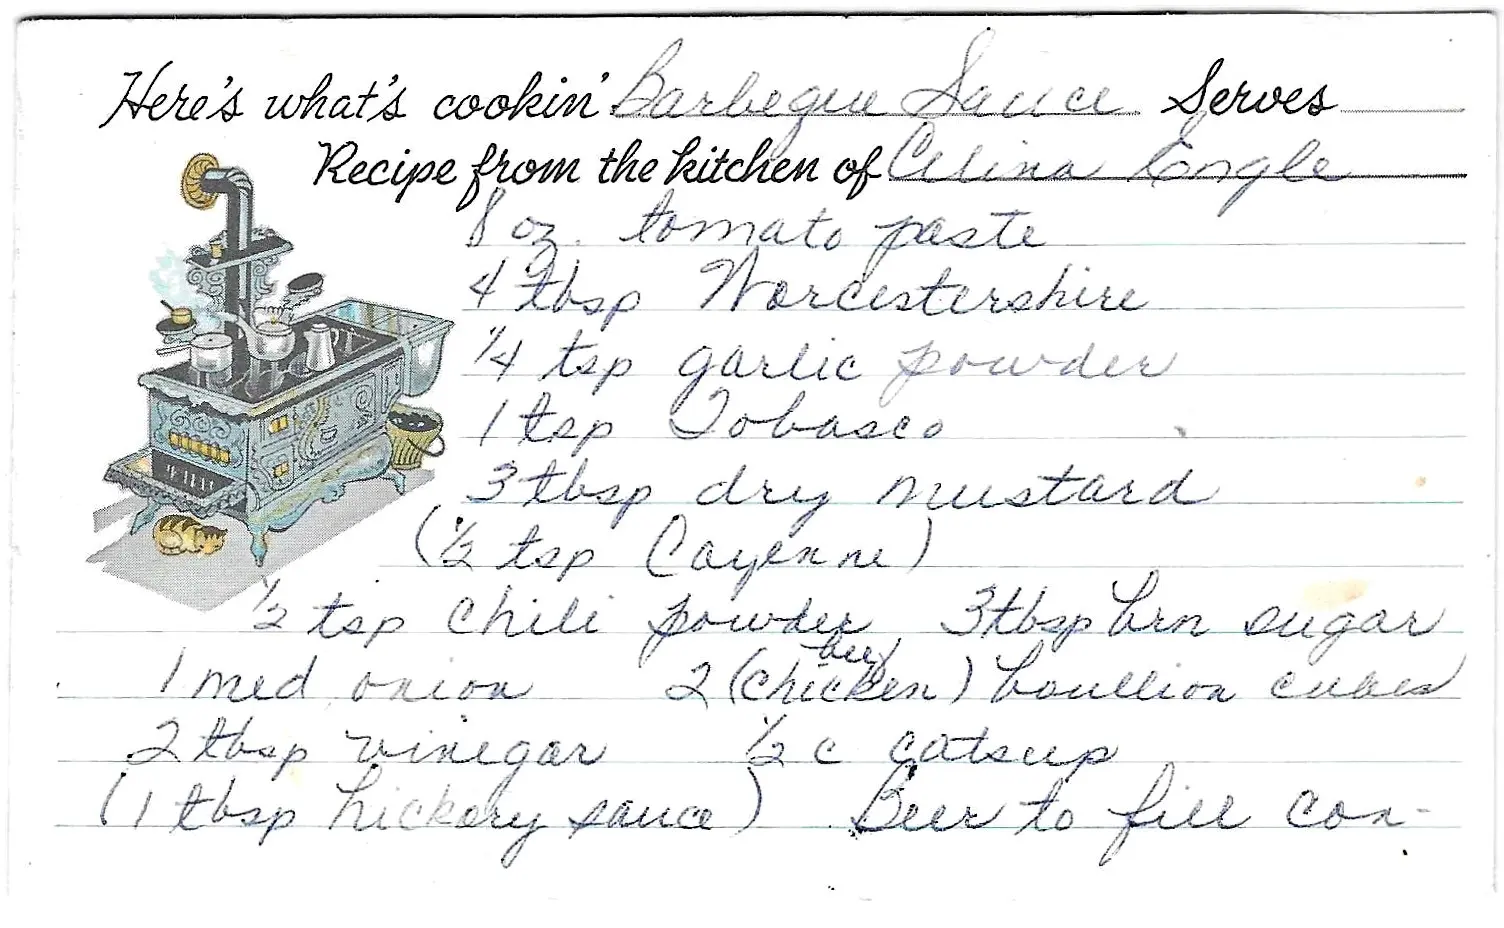 Here's what's cookin' Barbeque Sauce Serves
Recipe from the kitchen of Celina Engle
8 oz. tomato paste
4 tbsp Worcestershire
1/4 tsp garlic powder
1 tsp Tobasco
3 tbsp dry mustard
(1/2 tsp Cayenne)
1/2 tsp chili powder 3 tbsp brn sugar
beef
1 med onion 2 (chicken) boullion cubes
2 tbsp vinegar 1/2 c catsup
(1 tbsp hickory sauce) Beer to fill con-